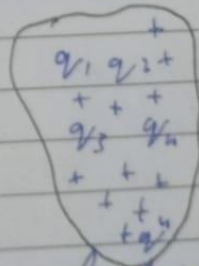 +
q₁ q₂ +
+ + +
q₃ q₄
+ + +
+ +
+ qⁿ